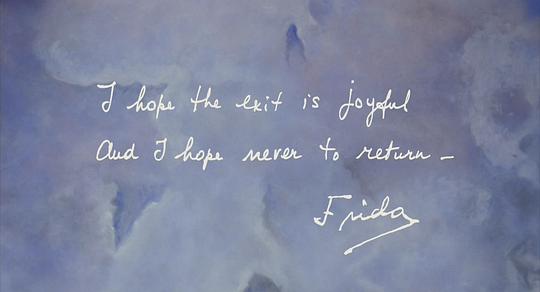 I hope the exit is joyful
And I hope never to return –
Frida